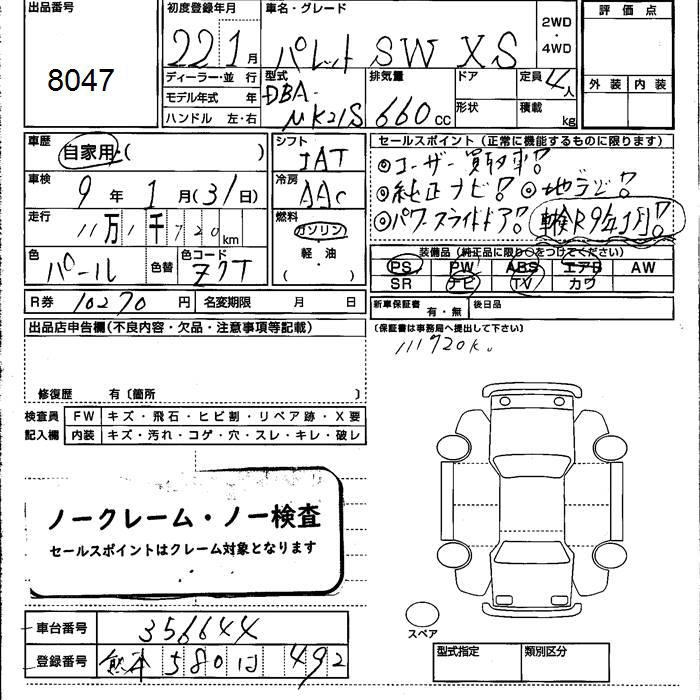 出品番号
8047
初度登録年月
22 1月
車名・グレード
パレット SW XS
2WD
・
4WD
評価点
外装 内装
ディーラー・並 行
モデル年式 年
ハンドル 左・右
型式
DBA-
MK21S
排気量
660cc
ドア
形状
定員 4人
積載 kg
車歴
自家用・( )
車検 9年 1月(31日)
走行 11万1千720km
色 パール 色替
色コード Z7T
シフト
IAT
冷房
AAC
燃料
ガソリン
(軽・油)
セールスポイント(正常に機能するものに限ります)
◎ユーザー買取車!!
◎純正ナビ!! ◎地デジ!!
◎パワースライドドア!! 車検R9年1月!!
装備品(純正品に限り○をつけてください)
PS PW ABS エアB AW
SR ナビ TV カワ
R券 10270円 名変期限 月 日
新車保証書 有・無 後日品
(保証書は事務局へ提出して下さい)
111720k.
出品店申告欄(不良内容・欠品・注意事項等記載)
修復歴 有〔箇所 〕
検査員 FW キズ・飛石・ヒビ割・リペア跡・X要
記入欄 内装 キズ・汚れ・コゲ・穴・スレ・キレ・破レ
ノークレーム・ノー検査
セールスポイントはクレーム対象となります
スペア
車台番号 356644
登録番号 熊本 580 は 492
型式指定 類別区分